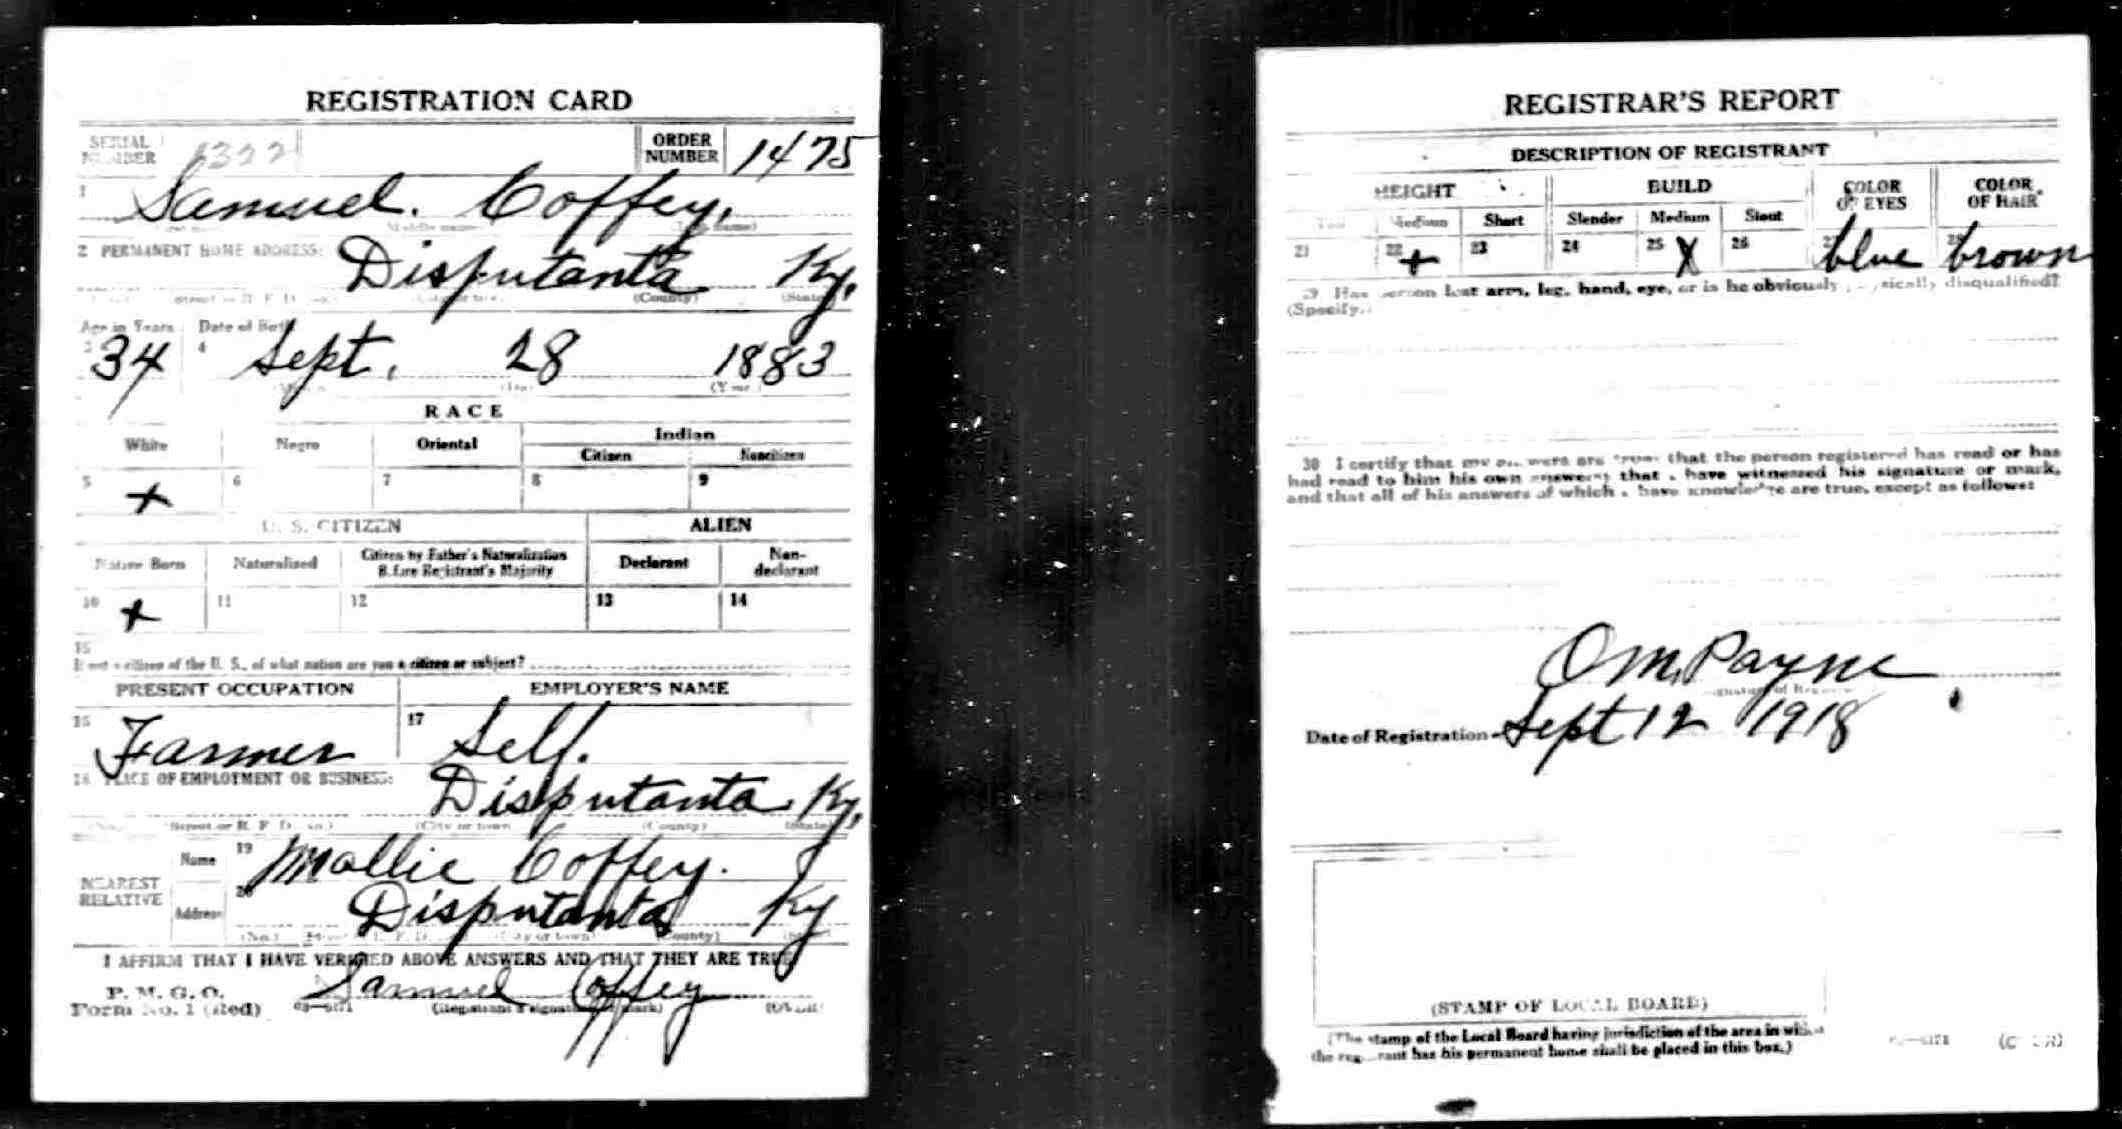 REGISTRATION CARD
SERIAL NUMBER 1322 ORDER NUMBER 1475
1 Samuel. Coffey.
(Middle name) (Last name)
2 PERMANENT HOME ADDRESS:
Disputanta Ky.
(County) (State)
Age in Years Date of Birth
3 34 4 Sept. 28 1883
(Day) (Year)
RACE
White Negro Oriental Indian
Citizen Noncitizen
5 + 6 7 8 9
U. S. CITIZEN ALIEN
Native Born Naturalized Citizen by Father's Naturalization Before Registrant's Majority Declarant Non-declarant
10 + 11 12 13 14
15
If not a citizen of the U. S., of what nation are you a citizen or subject?
PRESENT OCCUPATION EMPLOYER'S NAME
16 Farmer 17 Self.
18 PLACE OF EMPLOYMENT OR BUSINESS:
Disputanta Ky.
(Street or R. F. D. No.) (City or town) (County) (State)
NEAREST RELATIVE
Name 19 Mollie Coffey.
Address 20 Disputanta Ky
(No.) (City or town) (County)
I AFFIRM THAT I HAVE VERIFIED ABOVE ANSWERS AND THAT THEY ARE TRUE
P. M. G. O.
Form No. 1 (Red) Samuel Coffey
(Registrant's signature or mark) (OVER)
REGISTRAR'S REPORT
DESCRIPTION OF REGISTRANT
HEIGHT BUILD COLOR OF EYES COLOR OF HAIR
Tall Medium Short Slender Medium Stout
21 22 + 23 24 25 X 26 27 blue 28 brown
29 Has person lost arm, leg, hand, eye, or is he obviously physically disqualified?
(Specify.)
30 I certify that my answers are true; that the person registered has read or has
had read to him his own answers; that I have witnessed his signature or mark,
and that all of his answers of which I have knowledge are true, except as follows:
O M. Payne
(Signature of Registrar)
Date of Registration Sept 12 1918
(STAMP OF LOCAL BOARD)
(The stamp of the Local Board having jurisdiction of the area in which
the registrant has his permanent home shall be placed in this box.)
(OVER)